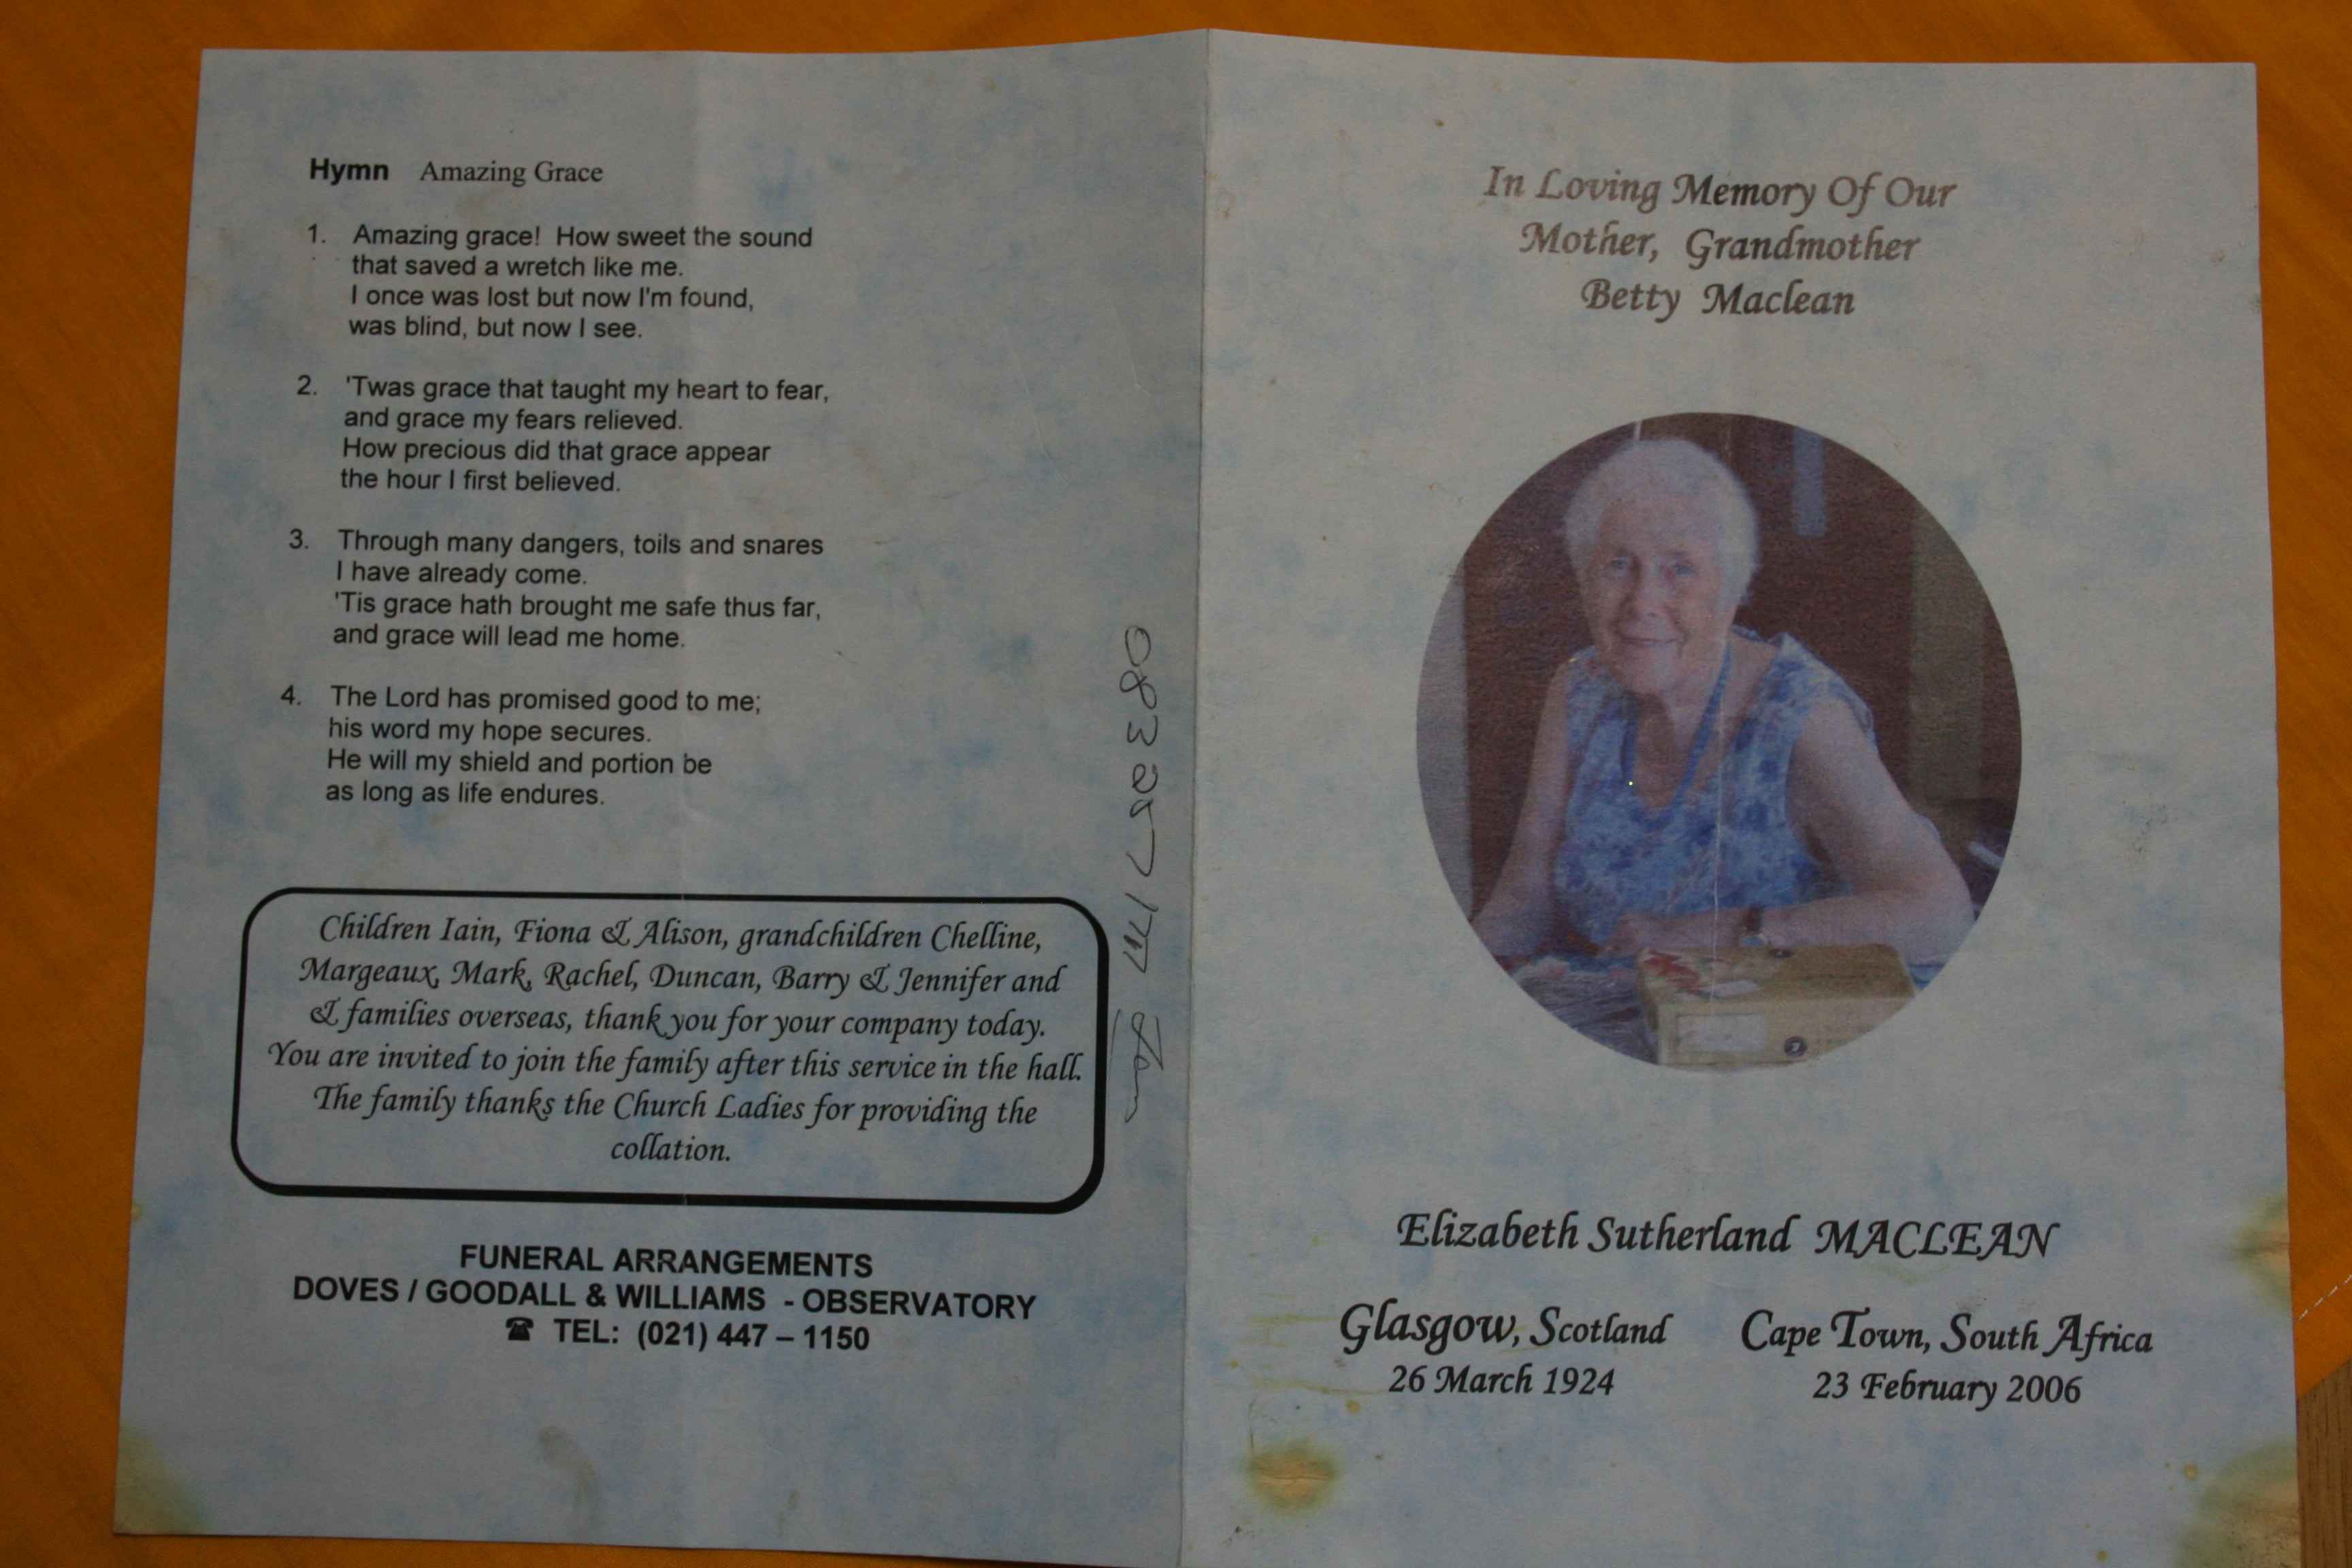 Hymn Amazing Grace
1. Amazing grace! How sweet the sound
that saved a wretch like me.
I once was lost but now I'm found,
was blind, but now I see.
2. 'Twas grace that taught my heart to fear,
and grace my fears relieved.
How precious did that grace appear
the hour I first believed.
3. Through many dangers, toils and snares
I have already come.
'Tis grace hath brought me safe thus far,
and grace will lead me home.
4. The Lord has promised good to me;
his word my hope secures.
He will my shield and portion be
as long as life endures.
Children Iain, Fiona & Alison, grandchildren Chelline,
Margeaux, Mark, Rachel, Duncan, Barry & Jennifer and
& families overseas, thank you for your company today.
You are invited to join the family after this service in the hall.
The family thanks the Church Ladies for providing the
collation.
FUNERAL ARRANGEMENTS
DOVES / GOODALL & WILLIAMS - OBSERVATORY
☎ TEL: (021) 447 – 1150
In Loving Memory Of Our
Mother, Grandmother
Betty Maclean
Elizabeth Sutherland MACLEAN
Glasgow, Scotland Cape Town, South Africa
26 March 1924 23 February 2006